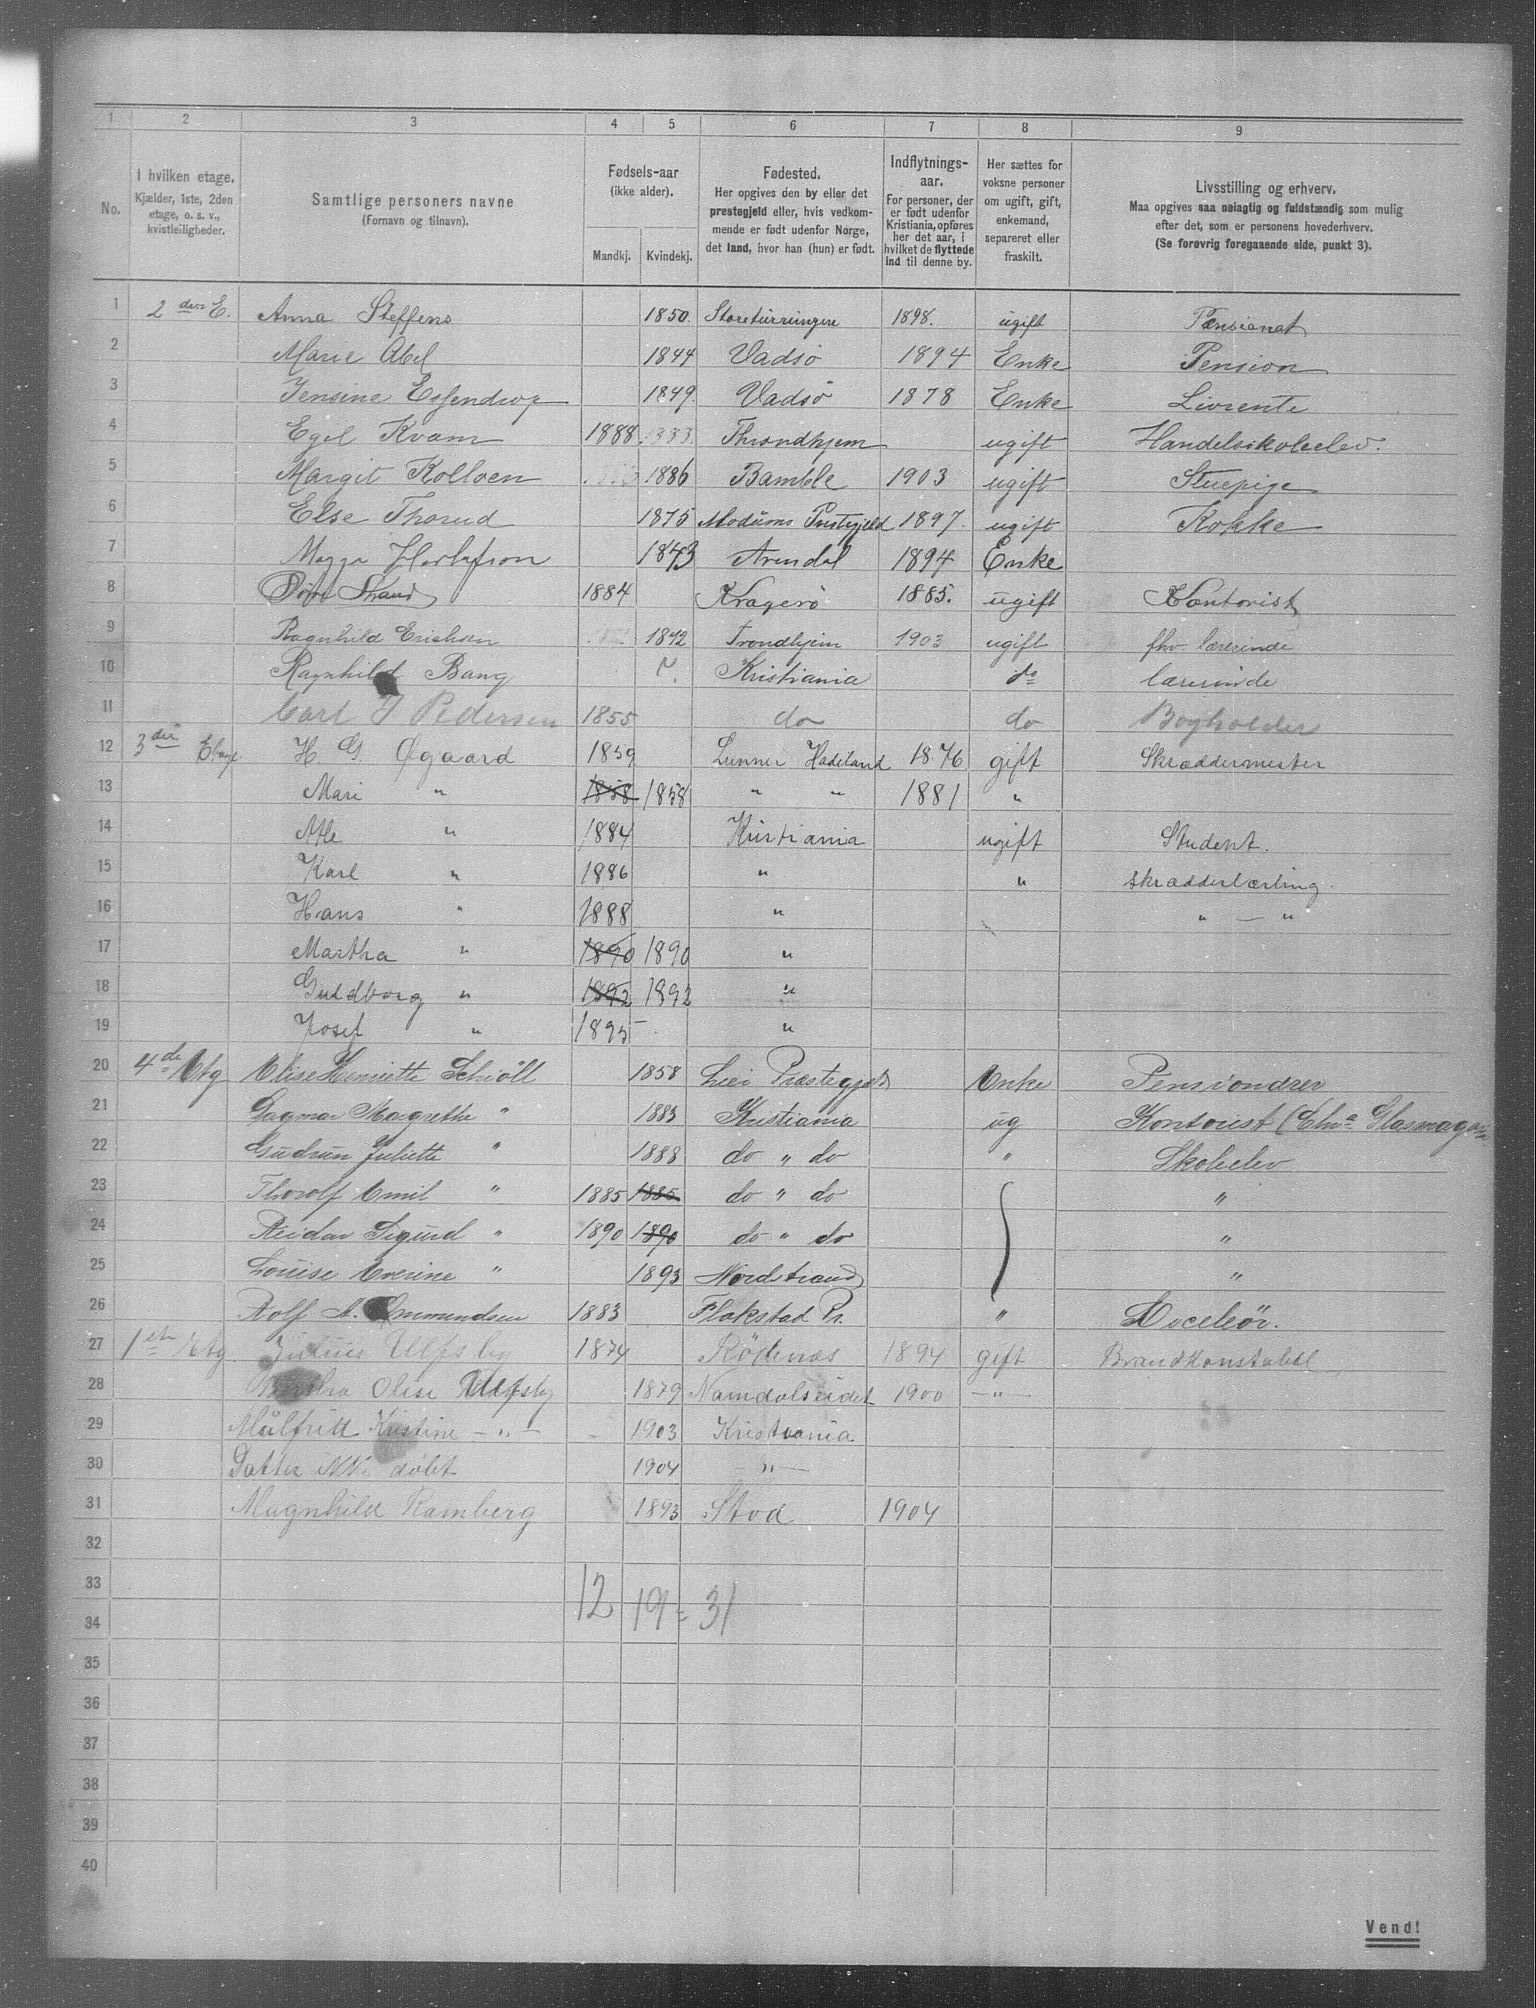 1 2 3 4 5 6 7 8 9
No.
I hvilken etage.
Kjælder, 1ste, 2den
etage, o. s. v.,
kvistleiligheder.
Samtlige personers navne
(Fornavn og tilnavn).
Fødsels-aar
(ikke alder).
Mandkj. Kvindekj.
Fødested.
Her opgives den by eller det
prestegjeld eller, hvis vedkom-
mende er født udenfor Norge,
det land, hvor han (hun) er født.
Indflytnings-
aar.
For personer, der
er født udenfor
Kristiania, opføres
her det aar, i
hvilket de flyttede
ind til denne by.
Her sættes for
voksne personer
om ugift, gift,
enkemand,
separeret eller
fraskilt.
Livsstilling og erhverv.
Maa opgives saa nøiagtig og fuldstændig som mulig
efter det, som er personens hovederhverv.
(Se forøvrig foregaaende side, punkt 3).
1 2 den E. Anna Steffens 1850. 1898. ugift Pensionat
2 Marie Abel 1844 Vadsö 1894 Enke Pension
3 Jensine Essendrop 1849 Vadsö 1878 Enke Livrente
4 Egil Kvam 1888 Throndhjem ugift Handelsskoleelev.
5 Margit Kolloen 1886 Bamble 1903 ugift Stuepige
6 Else Thorud 1875 Modums Prestegjeld 1897. ugift Kokke
7 Magga 1843 Arendal 1894 Enke
8 Strand 1884 Kragerö 1885. ugift Kontorist
9 Ragnhild Erichsen 1842 Trondhjem 1903 ugift fhv. lærerinde
10 Ragnhild Bang ?. Kristiania do lærerinde
11 Carl J Pedersen 1855 do do Bogholder
12 3die Etage H. G. Øgaard 1859 Lunner Hadeland 1876 gift Skræddermester
13 Mari " 1858 1858 " " 1881 "
14 Atle " 1884 Kristiania ugift Student.
15 Karl " 1886 " " skrædderlærling.
16 Hans " 1888 " " — "
17 Martha " 1890 1890 "
18 Guldborg " 1892 1892 "
19 Josef " 1895 "
20 4de Etg Elise Henriette Schiöll 1858 Lier Præstegjeld Enke Pensiondrer
21 Dagmar Margrethe " 1883 Kristiania ug Kontorist (Chra Glasmagasin
22 Gudrun Juliette " 1888 do " do " Skoleelev
23 Thorolf Emil " 1885 1885 do " do "
24 Reidar Sigurd " 1890 1890 do " do "
25 Louise Everine " 1893 Nordstrand "
26 Rolf A. Ommundsen 1883 Flakstad Pr. "
27 1ste Etg. Julius Ulfsby 1874 Rödenæs 1894 gift Brandkonstabel
28 Bertha Olise Ulfsby 1879 Namdalseidet 1900 — " —
29 Målfritt Kristine — " — 1903 Kristiania
30 Datter ikke döbt 1904 — " —
31 Magnhild Ramberg 1893 Stod 1904
32
33
12 19 = 31
34
35
36
37
38
39
40
Vend!